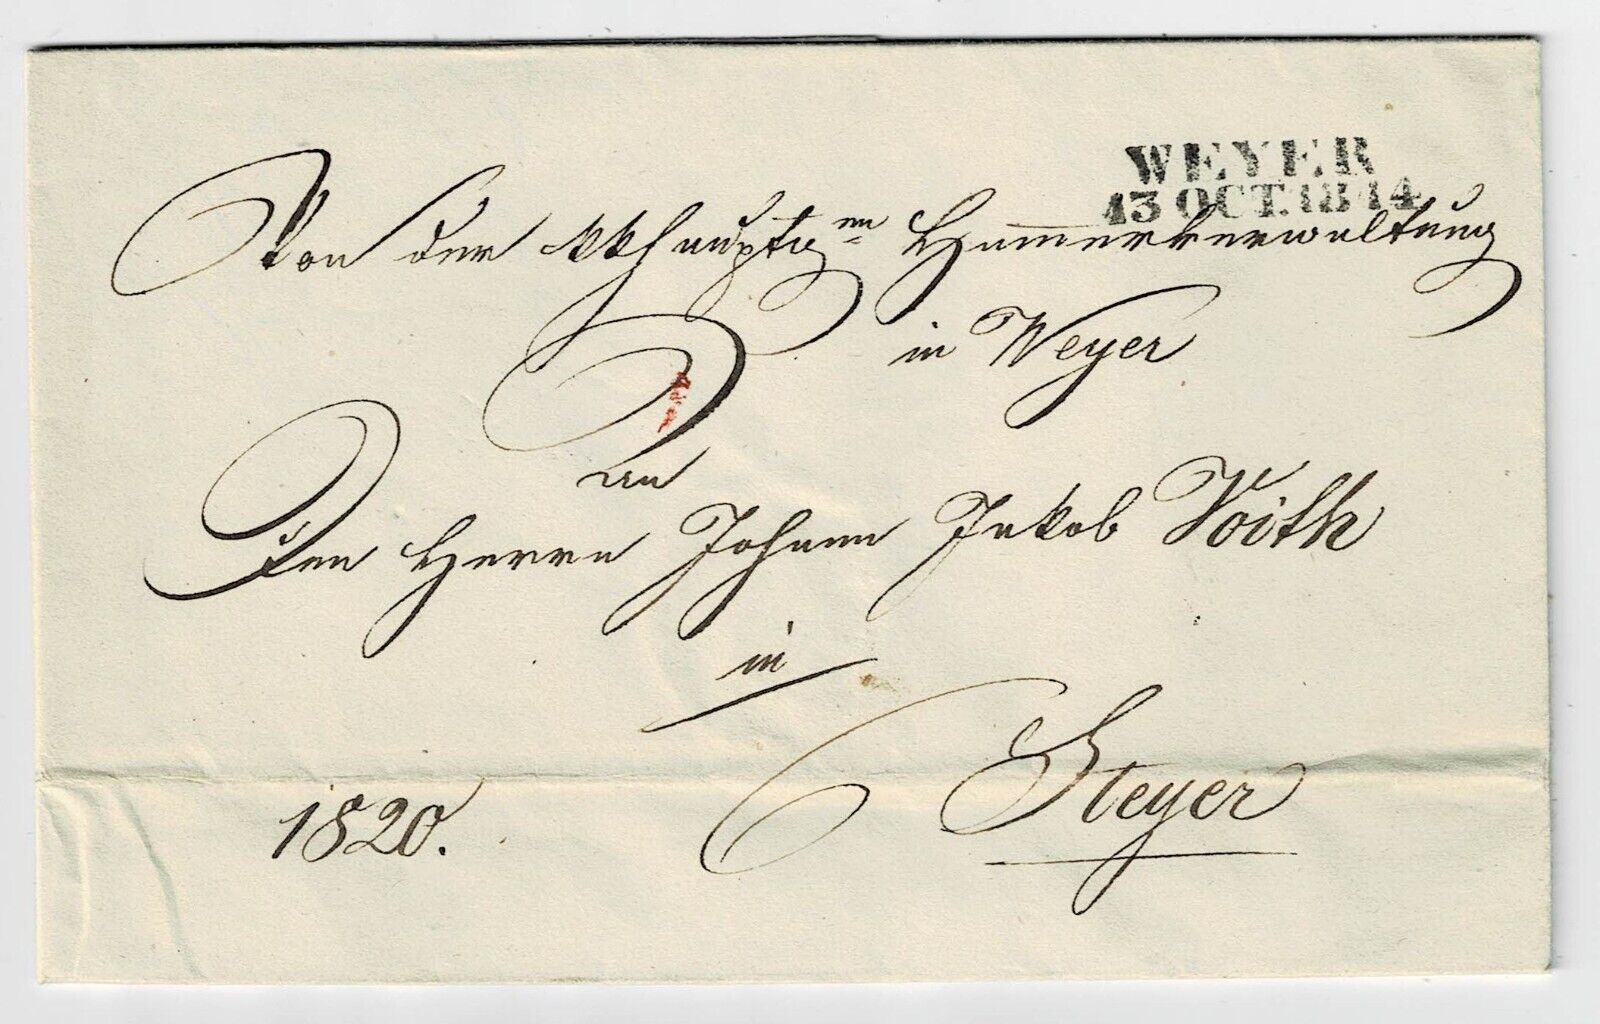 WEYER
13 OCT. 1844
Von der kk hauptg Ham̅erverwaltung
in Weyer
An
Den Herrn Johann Jakob Voith
in
Steyer
1820.